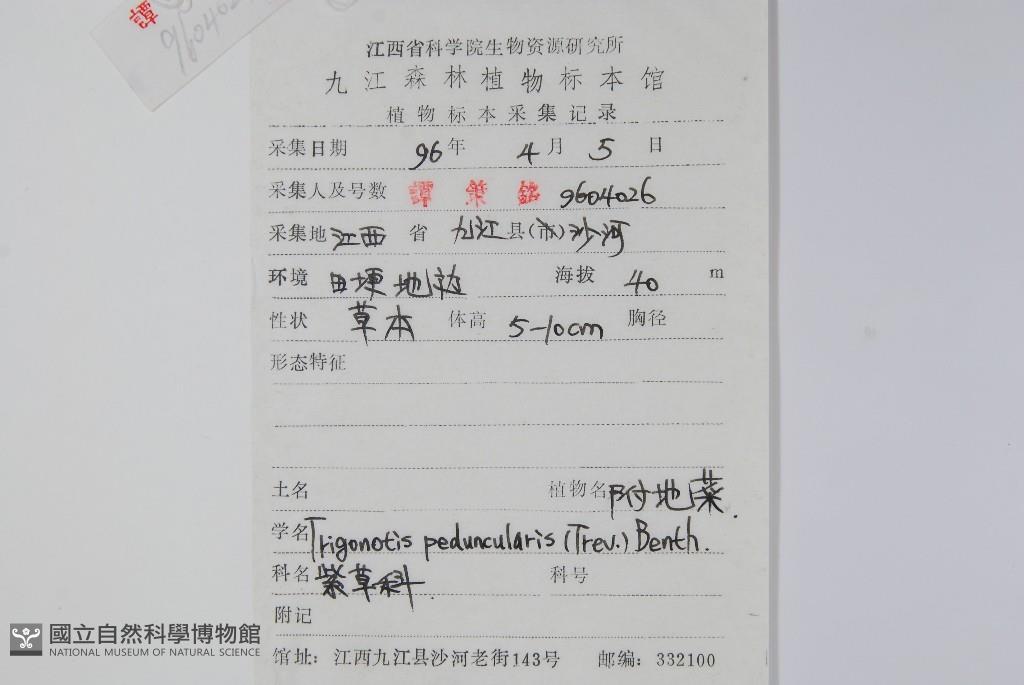 譚
960402
江西省科学院生物资源研究所
九江森林植物标本馆
植物标本采集记录
采集日期 96年 4月 5日
采集人及号数 譚策銘 9604026
采集地 江西 省 九江县(市)沙河
环境 田埂地边 海拔 40 m
性状 草本 体高 5-10cm 胸径
形态特征
土名 植物名 附地菜.
学名 Trigonotis peduncularis (Trev.) Benth.
科名 紫草科. 科号
附记
馆址: 江西九江县沙河老街143号 邮编: 332100
國立自然科學博物館
NATIONAL MUSEUM OF NATURAL SCIENCE